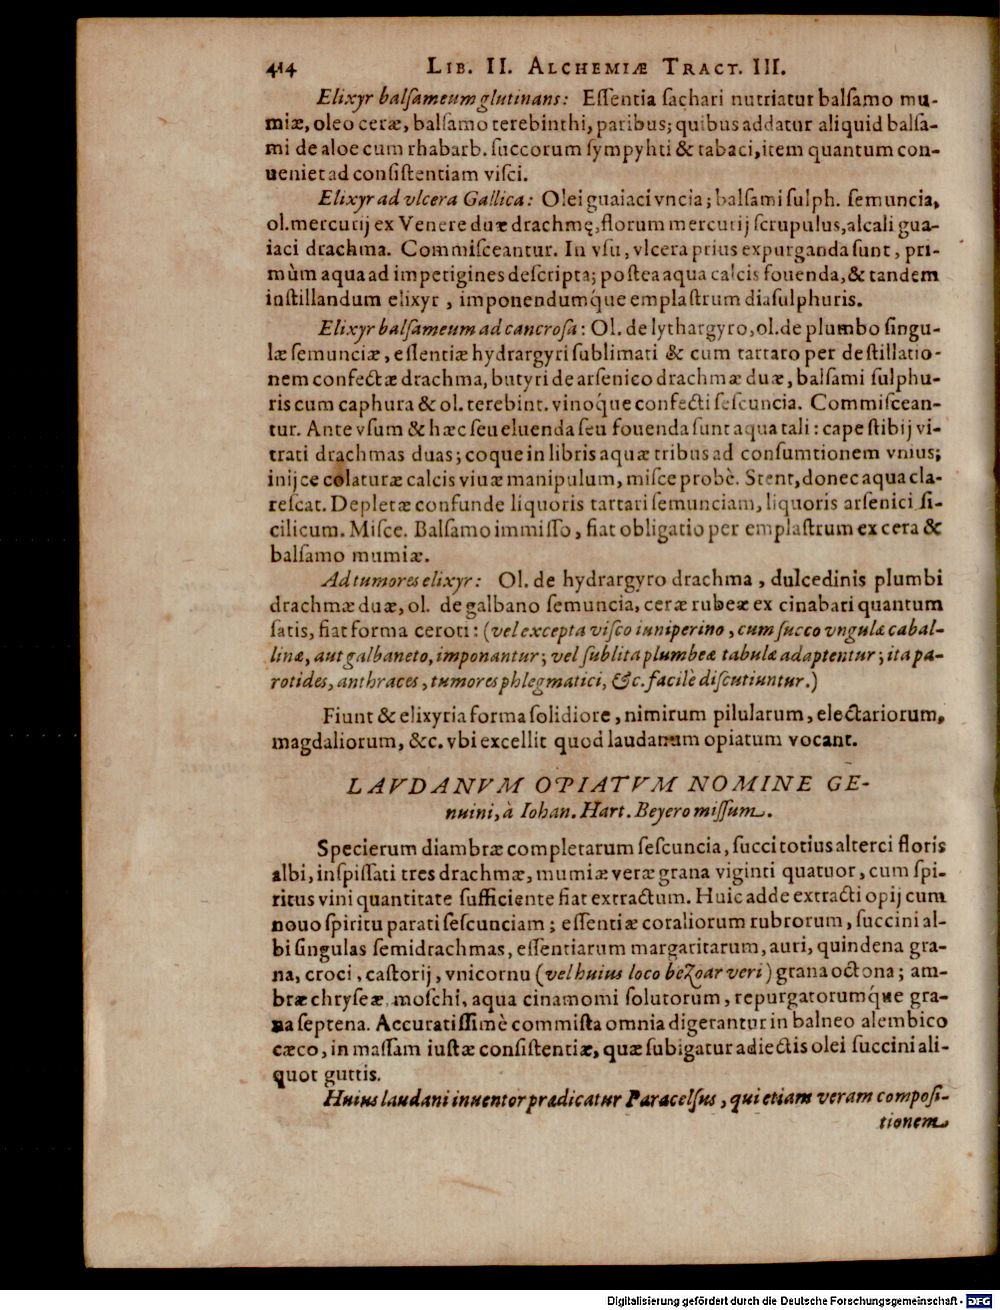 414 LIB. II. ALCHEMIÆ TRACT. III.
Elixyr balſameum glutinans: Eſſentia ſachari nutriatur balſamo mu-
miæ, oleo ceræ, balſamo terebinthi, paribus; quibus addatur aliquid balſa-
mi de aloe cum rhabarb. ſuccorum ſympyhti & tabaci, item quantum con-
ueniet ad conſiſtentiam viſci.
Elixyr ad vlcera Gallica: Olei guaiaci vncia; balſami ſulph. ſemuncia,
ol. mercurij ex Venere duæ drachmę, florum mercurij ſcrupulus, alcali gua-
iaci drachma. Commiſceantur. In vſu, vlcera prius expurganda ſunt, pri-
mùm aqua ad impetigines deſcripta; poſtea aqua calcis fouenda, & tandem
inſtillandum elixyr, imponendumq́ue emplaſtrum diaſulphuris.
Elixyr balſameum ad cancroſa: Ol. de lythargyro, ol. de plumbo ſingu-
læ ſemunciæ, eſſentiæ hydrargyri ſublimati & cum tartaro per deſtillatio-
nem confectæ drachma, butyri de arſenico drachmæ duæ, balſami ſulphu-
ris cum caphura & ol. terebint. vinoq́ue confecti ſeſcuncia. Commiſcean-
tur. Ante vſum & hæc ſeu eluenda ſeu fouenda ſunt aqua tali: cape ſtibij vi-
trati drachmas duas; coque in libris aquæ tribus ad conſumtionem vnius;
inijce colaturæ calcis viuæ manipulum, miſce probè. Stent, donec aqua cla-
reſcat. Depletæ confunde liquoris tartari ſemunciam, liquoris arſenici ſi-
cilicum. Miſce. Balſamo immiſſo, fiat obligatio per emplaſtrum ex cera &
balſamo mumiæ.
Ad tumores elixyr: Ol. de hydrargyro drachma, dulcedinis plumbi
drachmæ duæ, ol. de galbano ſemuncia, ceræ rubeæ ex cinabari quantum
ſatis, fiat forma ceroti: (vel excepta viſco iuniperino, cum ſucco vngulæ cabal-
linæ, aut galbaneto, imponantur; vel ſublita plumbeæ tabulæ adaptentur; ita pa-
rotides, anthraces, tumores phlegmatici, &c. facilè diſcutiuntur.)
Fiunt & elixyria forma ſolidiore, nimirum pilularum, electariorum,
magdaliorum, &c. vbi excellit quod laudanum opiatum vocant.
LAVDANVM OPIATVM NOMINE GE-
nuini, à Iohan. Hart. Beyero miſſum.
Specierum diambræ completarum ſeſcuncia, ſucci totius alterci floris
albi, inſpiſſati tres drachmæ, mumiæ veræ grana viginti quatuor, cum ſpi-
ritus vini quantitate ſufficiente fiat extractum. Huic adde extracti opij cum
nouo ſpiritu parati ſeſcunciam; eſſentiæ coraliorum rubrorum, ſuccini al-
bi ſingulas ſemidrachmas, eſſentiarum margaritarum, auri, quindena gra-
na, croci, caſtorij, vnicornu (vel huius loco bezoar veri) grana octona; am-
bræ chryſeæ, moſchi, aqua cinamomi ſolutorum, repurgatorumq́ue gra-
na ſeptena. Accuratiſſimè commiſta omnia digerantur in balneo alembico
cæco, in maſſam iuſtæ conſiſtentiæ, quæ ſubigatur adiectis olei ſuccini ali-
quot guttis.
Huius laudani inuentor prædicatur Paracelſus, qui etiam veram compoſi-
tionem
Digitalisierung gefördert durch die Deutsche Forschungsgemeinschaft - DFG